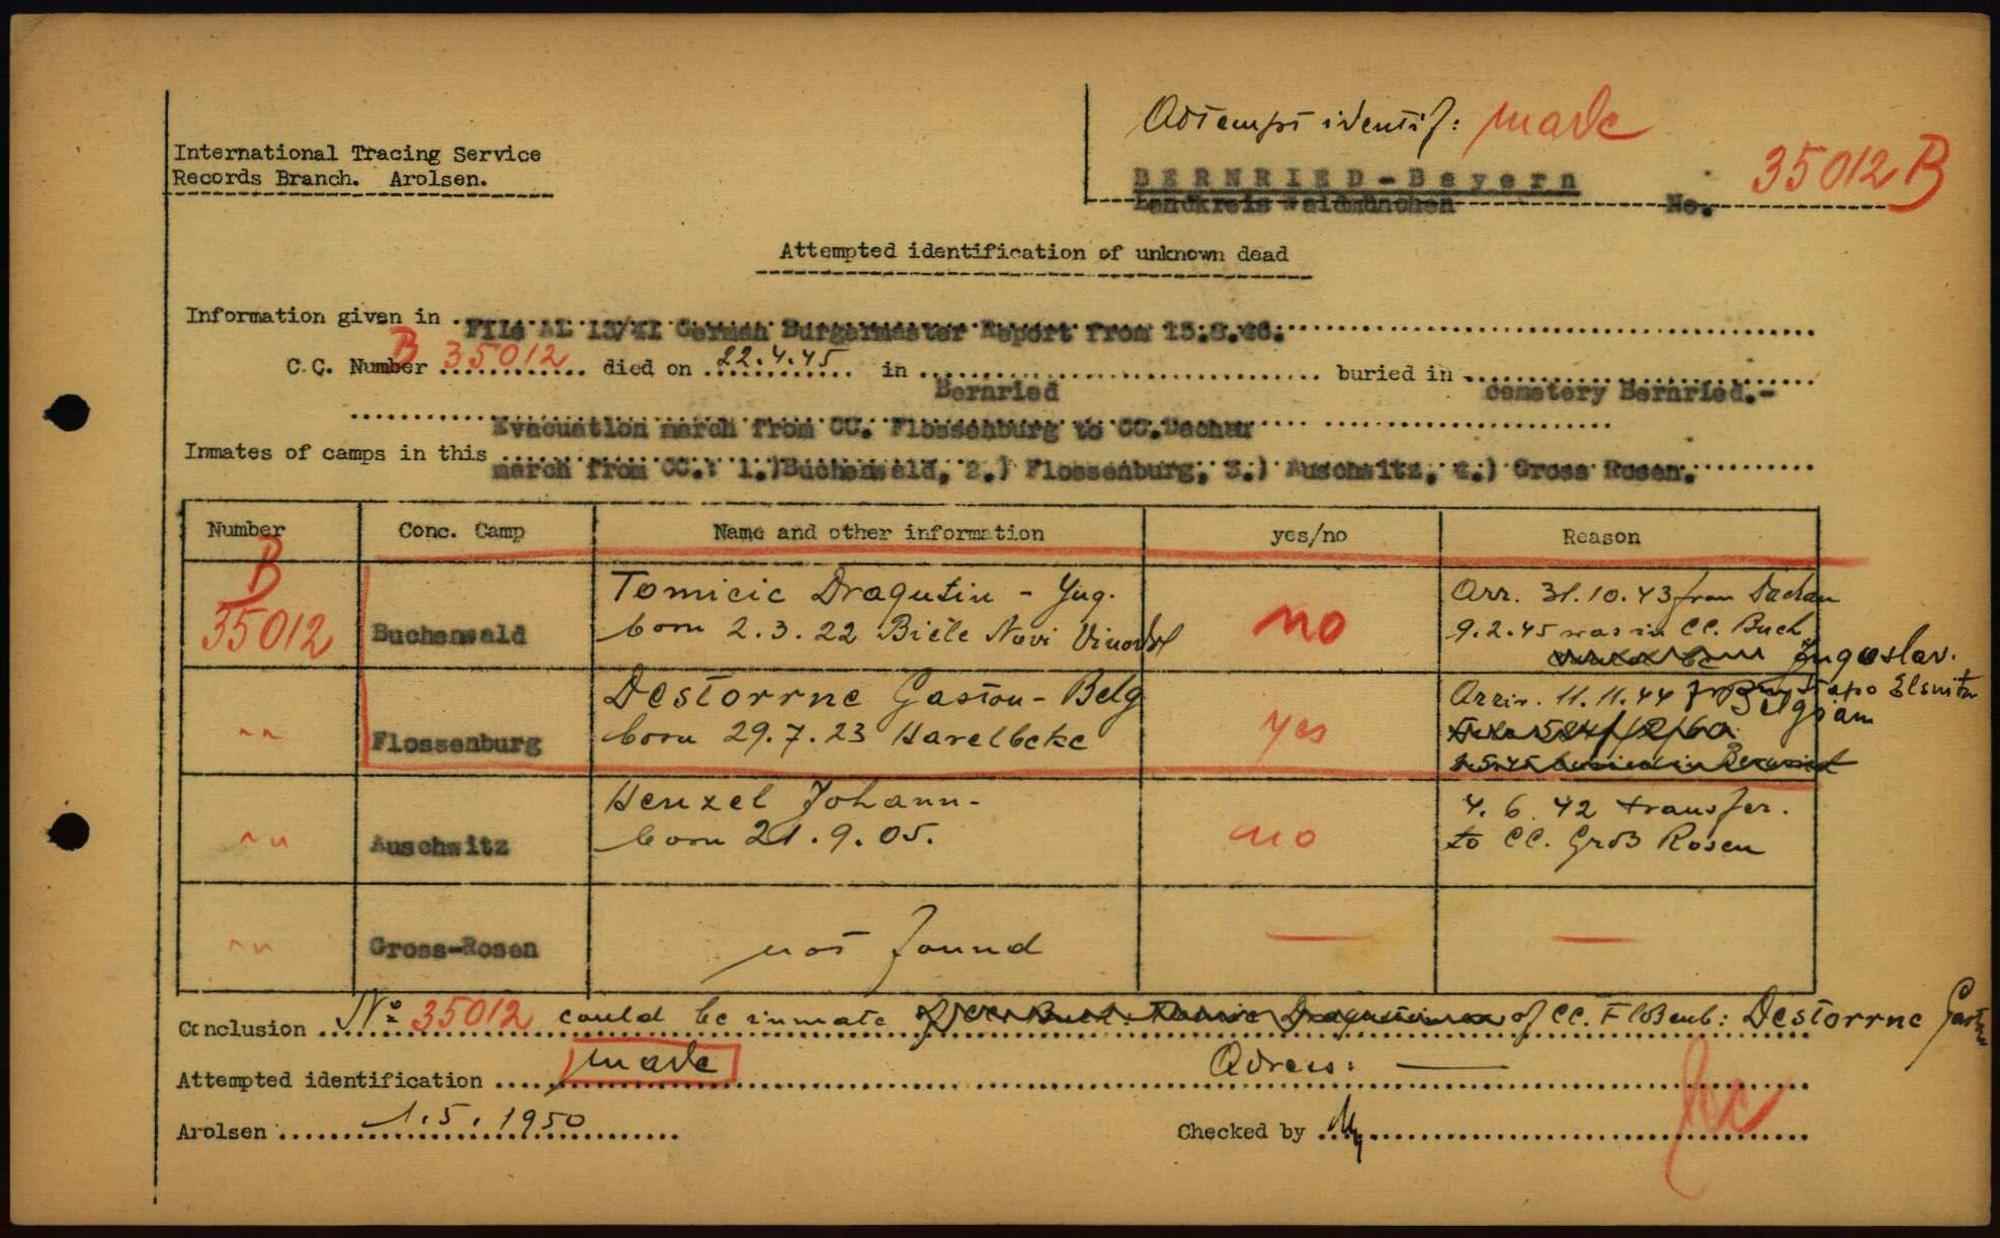 Attempt identif: made
International Tracing Service
Records Branch. Arolsen.
BERNRIED-Bayern
Landkreis Waldmünchen No. 35012 B
Attempted identification of unknown dead
Information given in File AL 13/XI German Burgermaster Report from 15.8.46.
C.C. Number B 35012 died on 22.4.45 in Bernried buried in cemetery Bernried.-
Evacuation march from CC. Flossenburg to CC.Dachau
Inmates of camps in this march from CC.: 1.)Buchenwald, 2.) Flossenburg, 3.) Auschwitz, 4.) Gross Rosen.
Number Conc. Camp Name and other information yes/no Reason
B
35012 Buchenwald Tomicic Dragutin - Yug. no Arr. 31.10.43 from Dachau
born 2.3.22 Biele Novi Vinodol 9.2.45 was in CC. Buch
Jugoslav.
" Flossenburg Destorrne Gaston - Belg yes Arriv. 11.11.44
born 29.7.23 Harelbeke Belgian
" Auschwitz Henzel Johann - no 4.6.42 transfer.
born 21.9.05. to CC. Groß Rosen
" Gross-Rosen not found — —
Conclusion No 35012 could be inmate of CC. Floßenb: Destorrne Gaston
Attempted identification made Adress: —
Arolsen 1.5.1950 Checked by